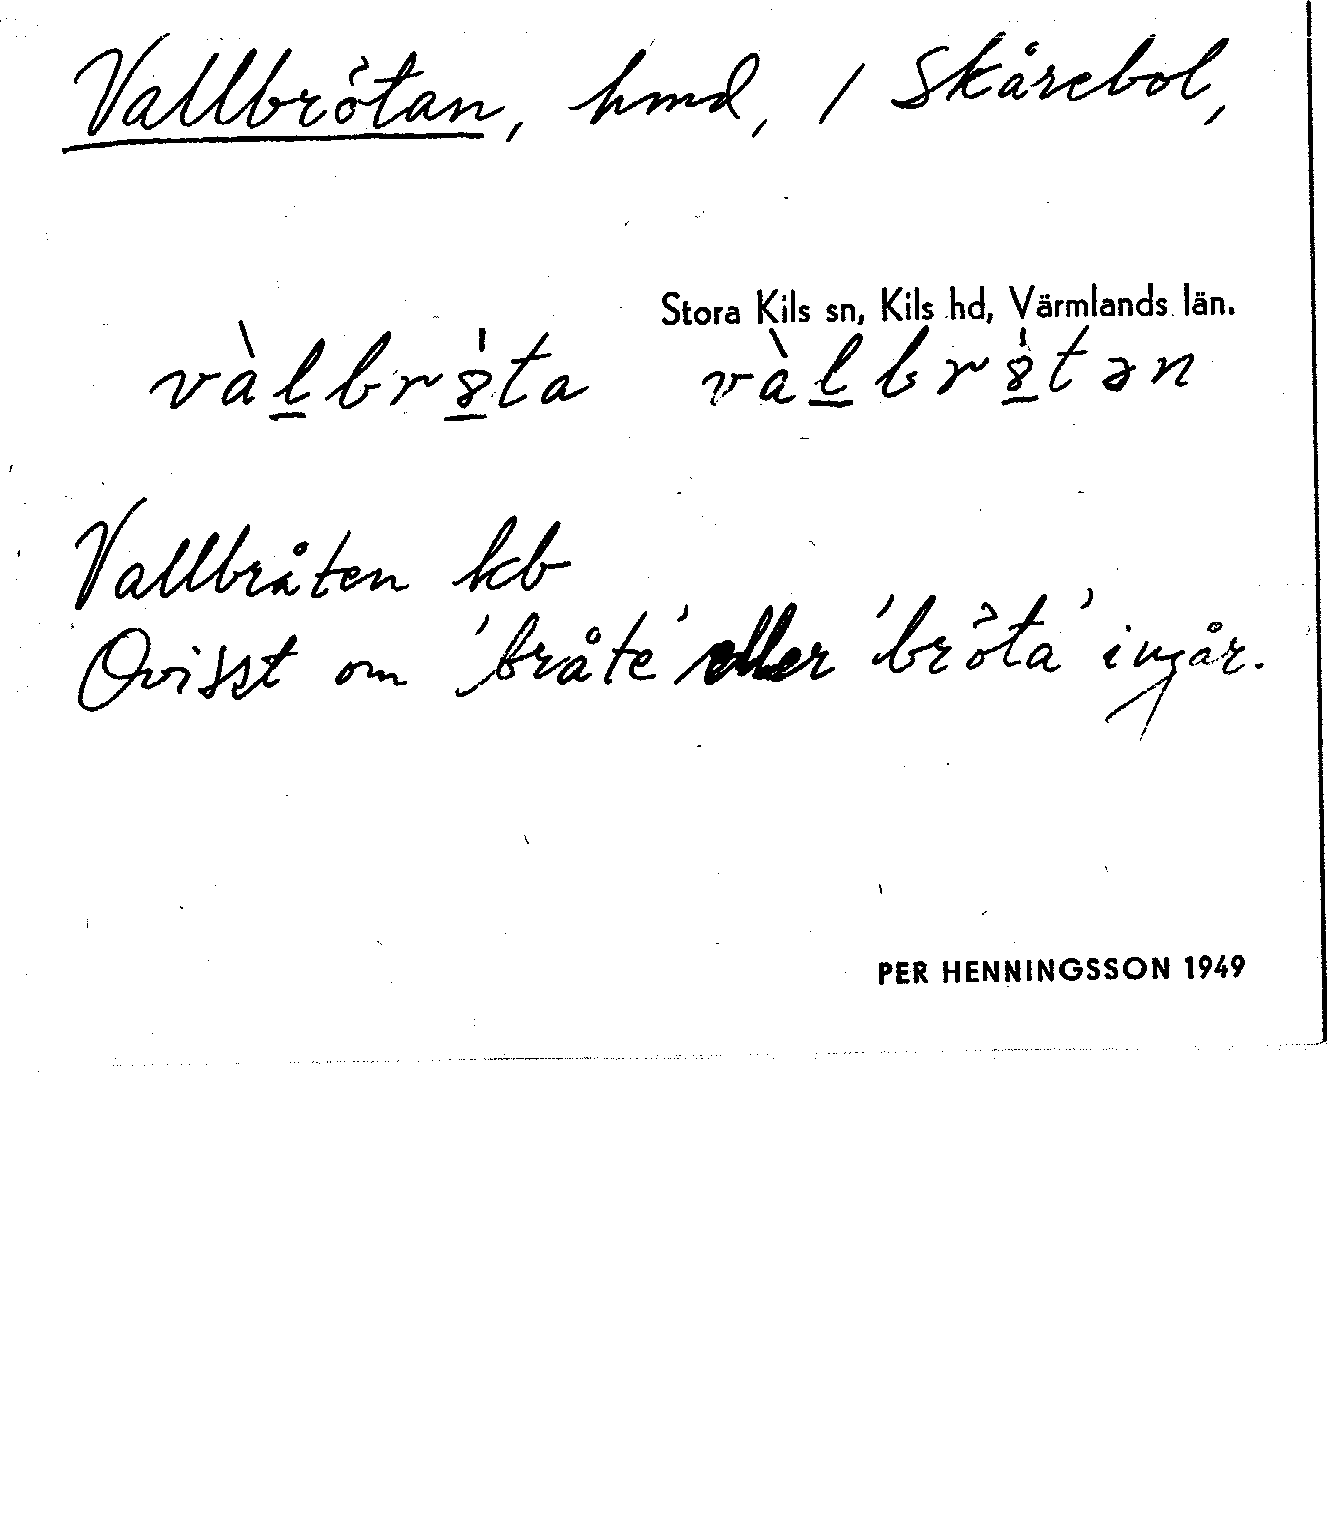 Vallbrötan, hmd, / Skårebol,
Stora Kils sn, Kils hd, Värmlands län.
Vallbråten kb
Ovisst om 'bråte' eller 'bröta' ingår.
PER HENNINGSSON 1949